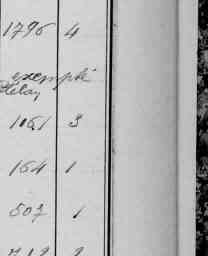 1796 4
exempté
1061 3
164 1
507 1